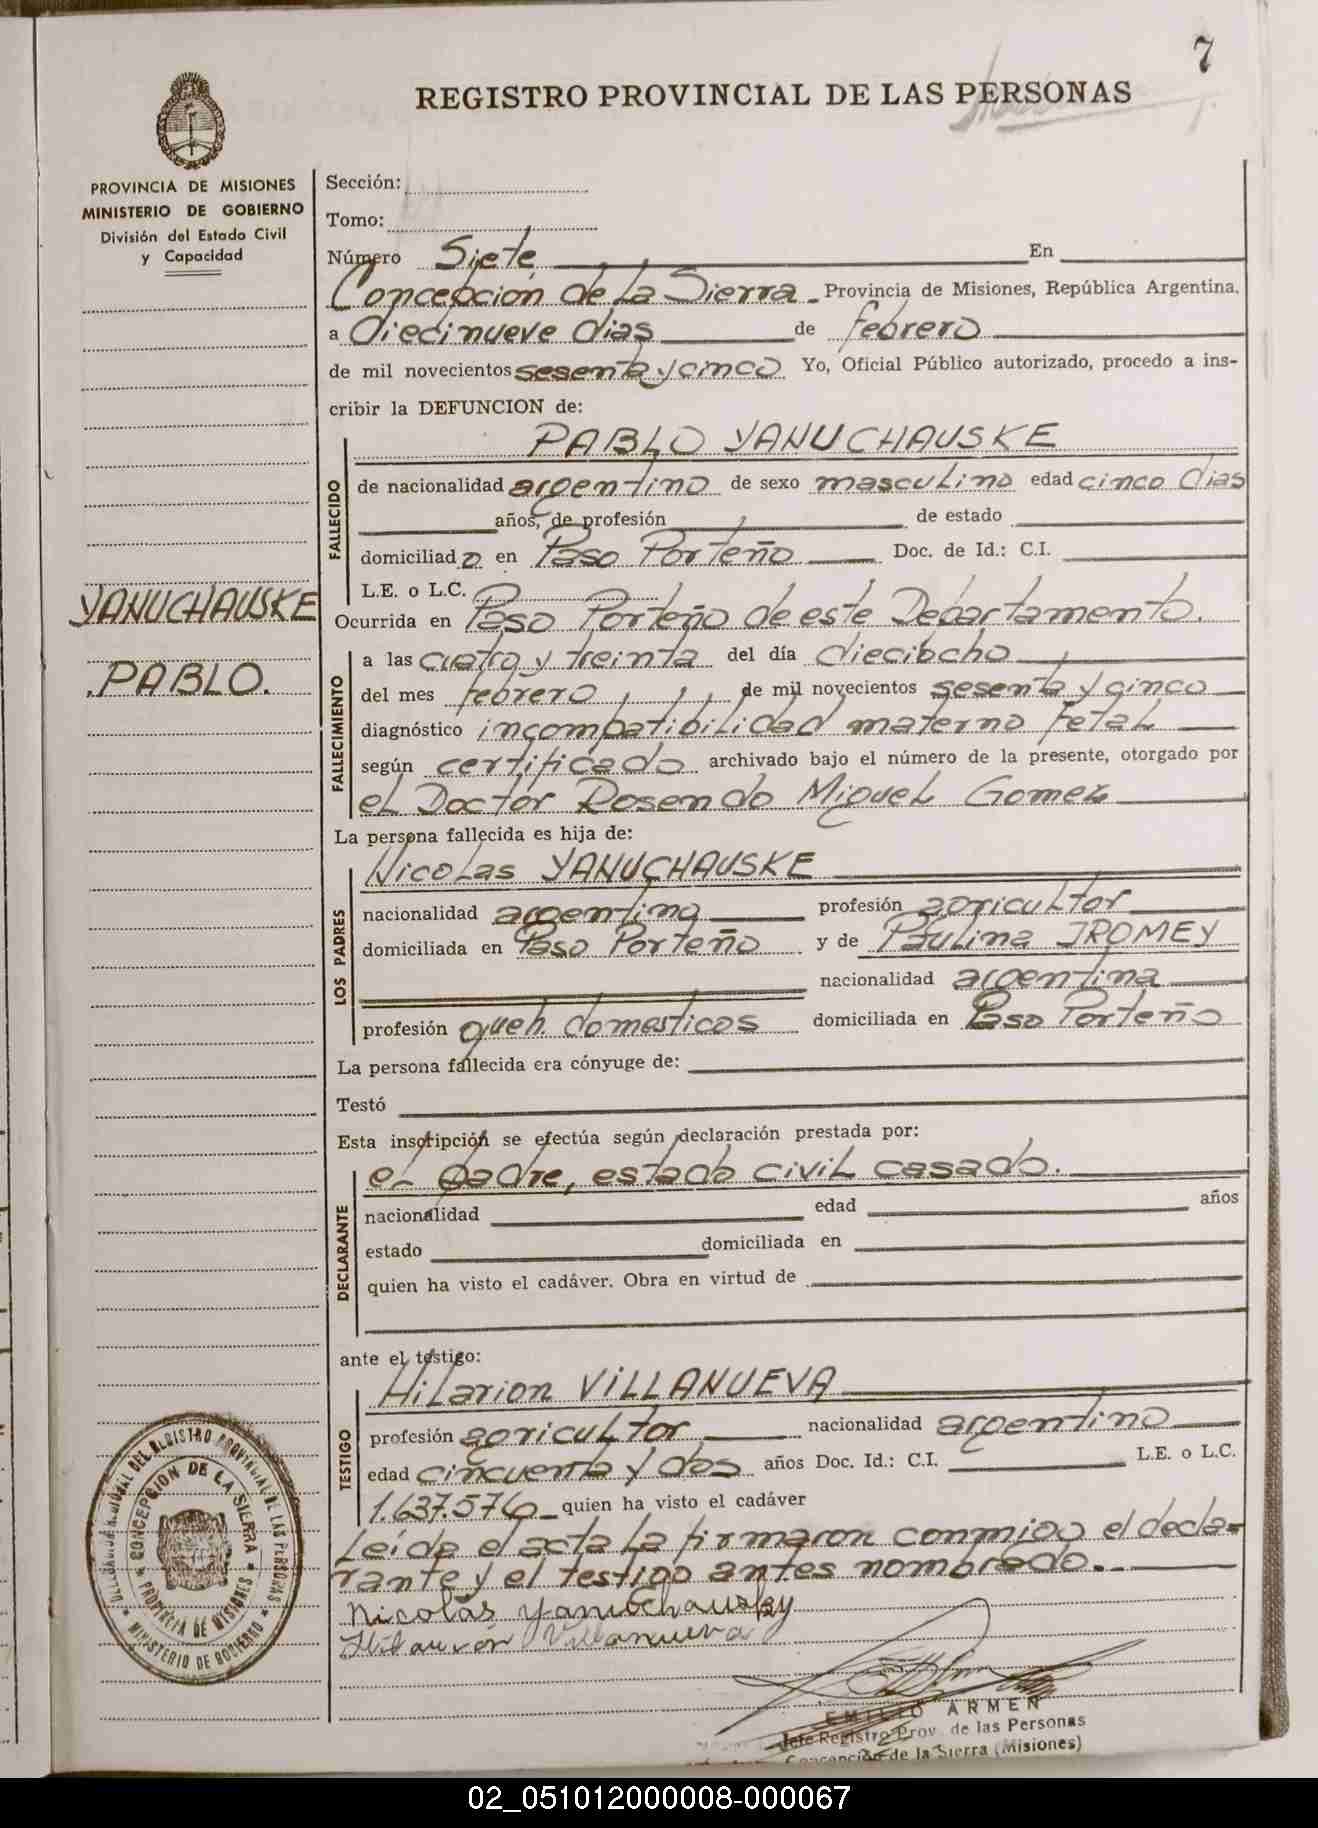 7
REGISTRO PROVINCIAL DE LAS PERSONAS
PROVINCIA DE MISIONES
MINISTERIO DE GOBIERNO
División del Estado Civil
y Capacidad
YANUCHAUSKE
PABLO.
Sección:
Tomo:
Número Siete En
Concepción de La Sierra. Provincia de Misiones, República Argentina,
a Diecinueve dias de febrero
de mil novecientos sesenta y cinco Yo, Oficial Público autorizado, procedo a ins-
cribir la DEFUNCION de:
PABLO YANUCHAUSKE
FALLECIDO
de nacionalidad argentino de sexo masculino edad cinco dias
años, de profesión de estado
domiciliado en Paso Porteño Doc. de Id.: C.I.
L.E. o L.C.
Ocurrida en Paso Porteño de este Departamento.
FALLECIMIENTO
a las cuatro y treinta del día dieciocho
del mes febrero de mil novecientos sesenta y cinco
diagnóstico incompatibilidad materno fetal
según certificado archivado bajo el número de la presente, otorgado por
el Doctor Rosendo Miguel Gomez
La persona fallecida es hija de:
LOS PADRES
Nicolas YANUCHAUSKE
nacionalidad argentina profesión agricultor
domiciliada en Paso Porteño y de Paulina IROMEY
nacionalidad argentina
profesión queh. domesticos domiciliada en Paso Porteño
La persona fallecida era cónyuge de:
Testó
Esta inscripción se efectúa según declaración prestada por:
DECLARANTE
el padre, estado civil casado.
nacionalidad edad años
estado domiciliada en
quien ha visto el cadáver. Obra en virtud de
ante el testigo:
TESTIGO
Hilarion VILLANUEVA
profesión agricultor nacionalidad argentino
edad cincuenta y dos años Doc. Id.: C.I. L.E. o L.C.
1.637.576 quien ha visto el cadáver
Leída el acta la firmaron conmigo el decla-
rante y el testigo antes nombrado.
Nicolás Yanuchausky
Hilarión Villanueva
EMILIO ARMEN
Jefe Registro Prov. de las Personas
Concepción de la Sierra (Misiones)
DELEGACION REGIONAL DEL REGISTRO PROVINCIAL DE LAS PERSONAS
MINISTERIO DE GOBIERNO
CONCEPCION DE LA SIERRA
PROVINCIA DE MISIONES
02_051012000008-000067